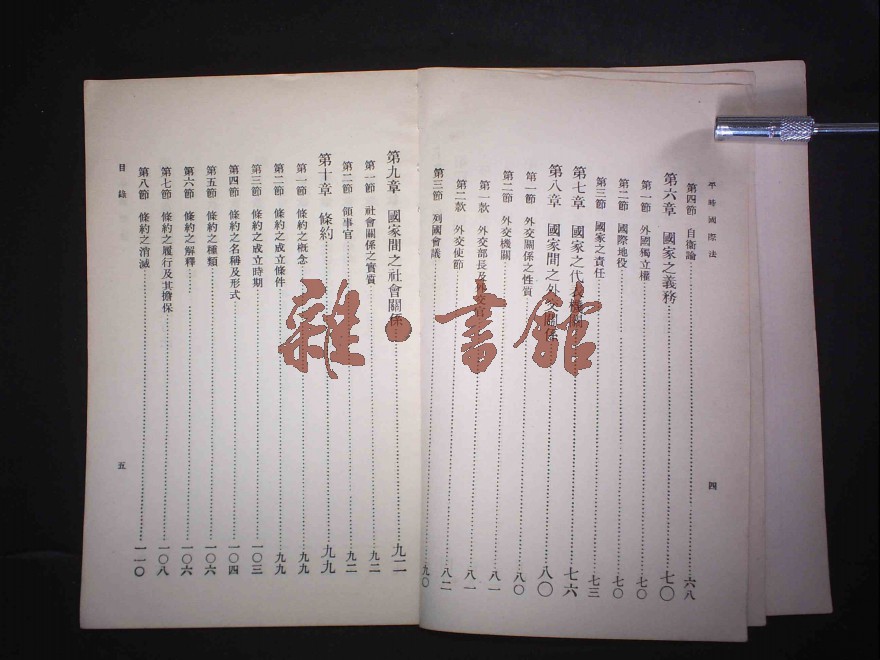 平時國際法
第四節 自衞論……六八
第六章 國家之義務……七〇
第一節 外國獨立權……七〇
第二節 國際地役……七〇
第三節 國家之責任……七三
第七章 國家之代表機關……七六
第八章 國家間之外交關係……八〇
第一節 外交關係之性質……八〇
第二節 外交機關……八一
第一款 外交部長及外交官……八一
第二款 外交使節……八二
第三節 列國會議……九〇
四
第九章 國家間之社會關係……九二
第一節 社會關係之實質……九二
第二節 領事官……九二
第十章 條約……九九
第一節 條約之概念……九九
第二節 條約之成立條件……九九
第三節 條約之成立時期……一〇三
第四節 條約之名稱及形式……一〇四
第五節 條約之種類……一〇六
第六節 條約之解釋……一〇六
第七節 條約之履行及其擔保……一〇八
第八節 條約之消滅……一一〇
目錄
五
雜·書館